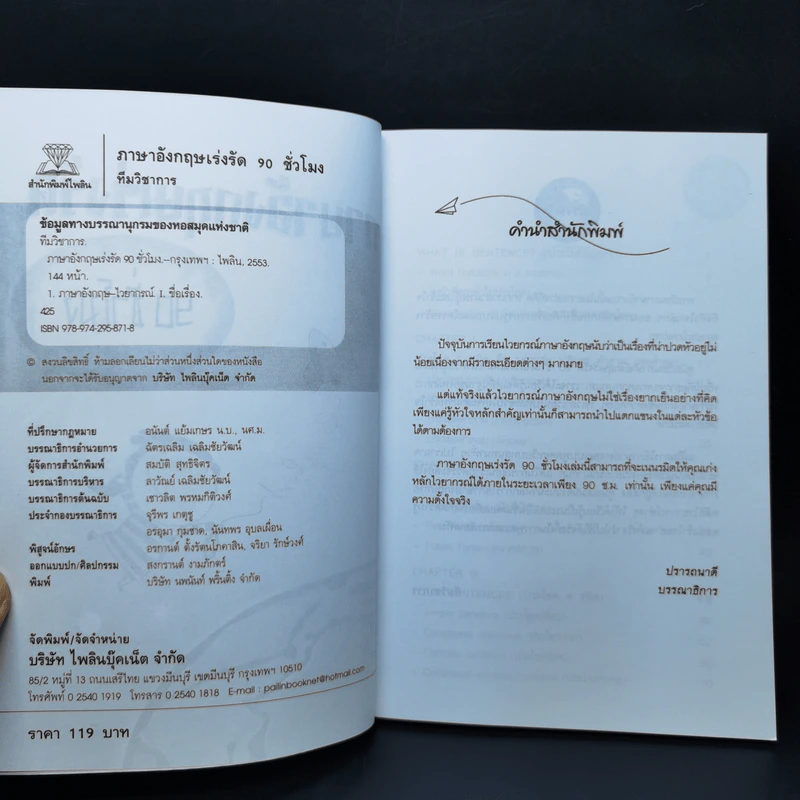 สำนักพิมพ์ไพลิน
ภาษาอังกฤษเร่งรัด 90 ชั่วโมง
ทีมวิชาการ
ข้อมูลทางบรรณานุกรมของหอสมุดแห่งชาติ
ทีมวิชาการ.
ภาษาอังกฤษเร่งรัด 90 ชั่วโมง.--กรุงเทพฯ : ไพลิน, 2553.
144 หน้า.
1. ภาษาอังกฤษ--ไวยากรณ์ I. ชื่อเรื่อง.
425
ISBN 978-974-295-871-8
© สงวนลิขสิทธิ์ ห้ามลอกเลียนไม่ว่าส่วนหนึ่งส่วนใดของหนังสือ
นอกจากจะได้รับอนุญาตจาก บริษัท ไพลินบุ๊คเน็ต จำกัด
ที่ปรึกษากฎหมาย อนันต์ แย้มเกษร น.บ., นศ.ม.
บรรณาธิการอำนวยการ ฉัตรเฉลิม เฉลิมชัยวัฒน์
ผู้จัดการสำนักพิมพ์ สมบัติ สุทธิจิตร
บรรณาธิการบริหาร ลาวัณย์ เฉลิมชัยวัฒน์
บรรณาธิการต้นฉบับ เชาวลิต พรหมกิติวงศ์
ประจำกองบรรณาธิการ จุรีพร เกตุชู
อรอุมา กุมชาด, นันทพร อุบลเผื่อน
พิสูจน์อักษร อรกานต์ ตั้งรัตนโภคาสิน, จริยา รักษ์วงศ์
ออกแบบปก/ศิลปกรรม สงกรานต์ งามภักตร์
พิมพ์ บริษัท นพนันท์ พริ้นติ้ง จำกัด
จัดพิมพ์/จัดจำหน่าย
บริษัท ไพลินบุ๊คเน็ต จำกัด
85/2 หมู่ที่ 13 ถนนเสรีไทย แขวงมีนบุรี เขตมีนบุรี กรุงเทพฯ 10510
โทรศัพท์ 0 2540 1919 โทรสาร 0 2540 1818 E-mail : pailinbooknet@hotmail.com
ราคา 119 บาท
คำนำสำนักพิมพ์
ปัจจุบันการเรียนไวยกรณ์ภาษาอังกฤษนับว่าเป็นเรื่องที่น่าปวดหัวอยู่ไม่
น้อยเนื่องจากมีรายละเอียดต่างๆ มากมาย
แต่แท้จริงแล้วไวยากรณ์ภาษาอังกฤษไม่ใช่เรื่องยากเย็นอย่างที่คิด
เพียงแค่รู้หัวใจหลักสำคัญเท่านั้นก็สามารถนำไปแตกแขนงในแต่ละหัวข้อ
ได้ตามต้องการ
ภาษาอังกฤษเร่งรัด 90 ชั่วโมงเล่มนี้สามารถที่จะเนนรมิตให้คุณเก่ง
หลักไวยากรณ์ได้ภายในระยะเวลาเพียง 90 ช.ม. เท่านั้น เพียงแค่คุณมี
ความตั้งใจจริง
ปรารถนาดี
บรรณาธิการ